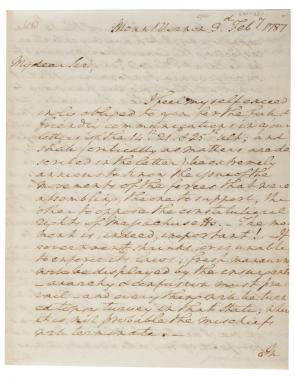 Mount Vernon 3d Feby 1787
My dear Sir,
I feel myself exceed
ingly obliged to you for the full, &
friendly communications in your
letters of the 14th 21st & 25th ult; and
shall (critically as matters are de-
scribed in the latter) be extremely
anxious to know the issue of the
movements of the forces that were
assembling, the one to support, the
other to oppose the constitutional
rights of Massachusetts. The mo-
ment is, indeed, important! If
government shrinks, or is unable
to enforce its laws; fresh manœuvres
will be displayed by the insurgents
anarchy & confusion must pre-
vail and every thing will be turn
ed topsy turvey in that State; where
it is not probable the mischiefs
will terminate.
In